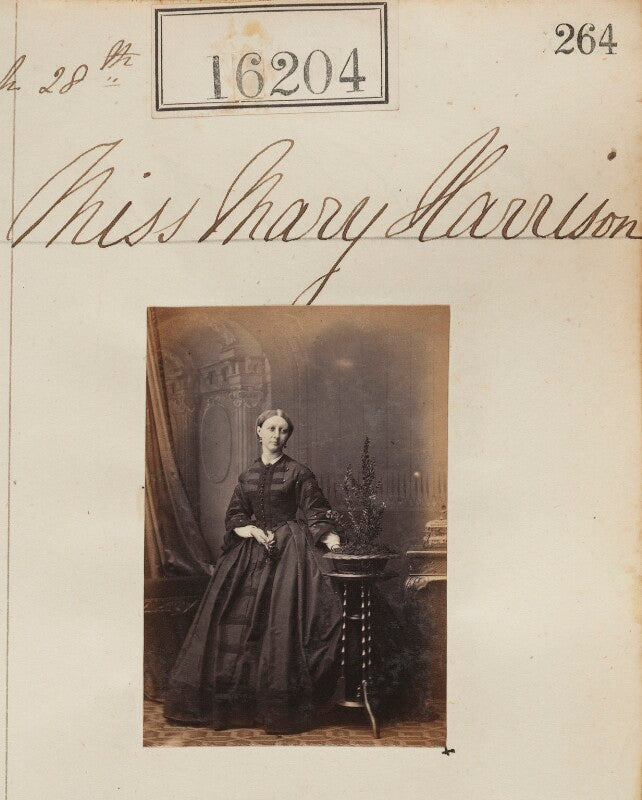 264
16204
28th
Miss Mary Harrison